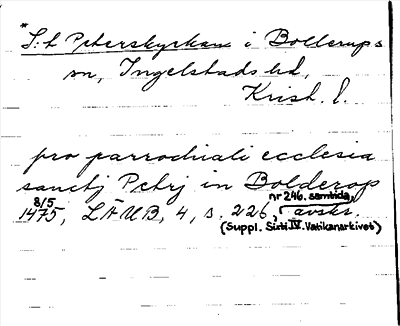 *
S:t Peterskyrkan i Bollerups
sn, Ingelstads hd,
Krist. l.
pro parrochiali ecclesia
sanctj Petrj in Bolderop
8/5 1475, LÄUB, 4, s. 226, nr 246. samtida, avskr.
(Suppl. Sixti IV. Vatikanarkivet)